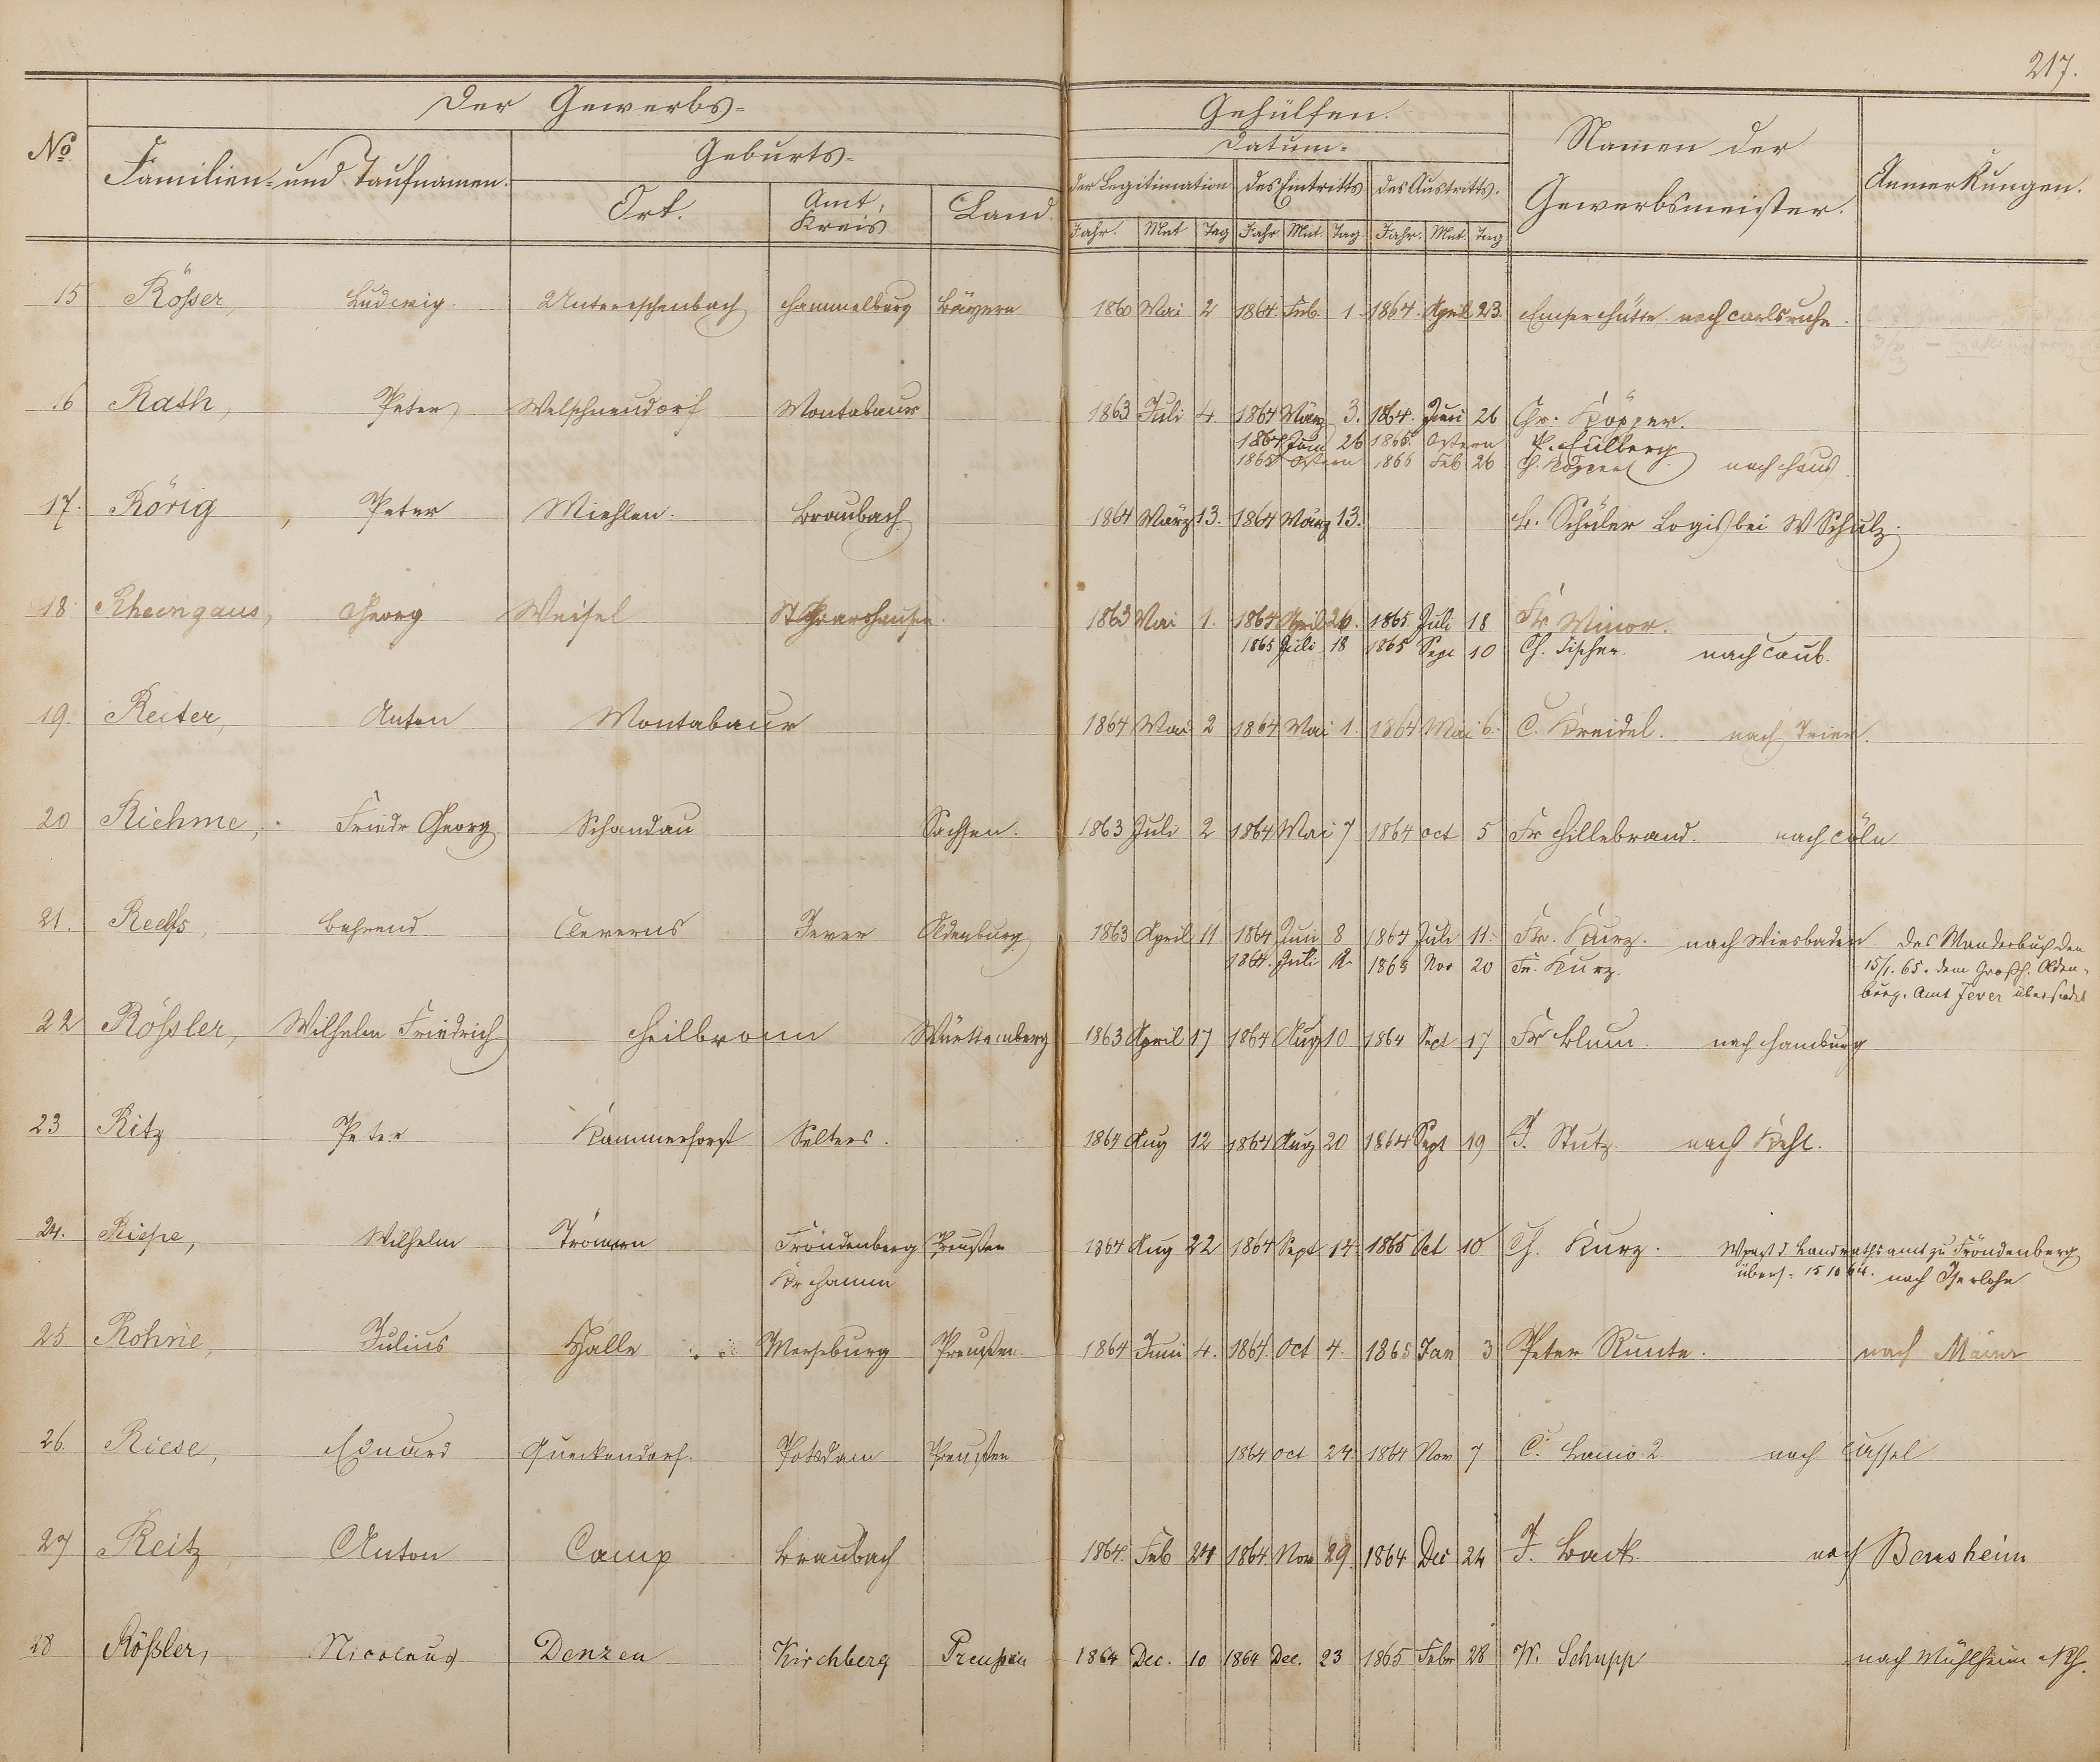 217.
Der Gewerbs=
Gehülfen.
No. Familien= und Taufnamen. Geburts= Datum= Namen der Gewerbsmeister. Anmerkungen.
Ort. Amt, Kreis Land. der Legitimation des Eintritts des Austritts.
Jahr. Mnt Tag Jahr Mnt. Tag Jahr. Mnt. Tag
15 Rößer, Ludwig. Untereschenbach Hammelburg Bayern 1860 Mai 2 1864. Feb. 1. 1864. April 23. Emser Hütte nach Carlsruhe.
16 Rath, Peter Welschneudorf Montabaur 1863 Juli 4. 1864 März 3. 1864. Juni 26 Chr. Köpper.
1864 Juni 26 1865. Ostern P. Hülberg
1865 Ostern 1866 Feb 26 nach Haus.
17. Rörig, Peter Miehlen. Braubach 1864 März 13. 1864 März 13. L. Schüler Logis bei W Schulz.
18. Rheingaus, Georg Weisel St Goarshausen. 1863 Mai 1. 1864 April 26. 1865. Juli 18 Fr Minor.
1865 Juli 18 1865 Sept 10 Ch. Fischer. nach Caub.
19. Reiter, Anton Montabaur 1864 Mai 2 1864 Mai 1. 1864 Mai 6. C. Kreidel. nach Trier.
20 Riehme, Friedr Georg Schandau Sachsen. 1863 Juli 2 1864 Mai 7 1864 Oct 5 Fr Hillebrand. nach Cöln
21. Reelfs, Behrend Cleverns Jever Oldenburg 1863 April 11 1864 Juni 8 1864 Juli 11. Fr. Kurz. nach Wiesbaden Das Wanderbuch den
1864. Juli 1864 Nov 20 Fr. Kurz. 15/1. 65. dem Großh. Olden-
burg. Amt Jever übersendet
22 Rößler, Wilhelm Friedrich Heilbronn Württemberg 1863 April 17 1864 Aug 10 1864 Sept 17 Fr Blum. nach Hamburg
23 Ritz Peter Kammerforst Selters. 1864 Aug 12 1864 Aug 20 1864 Sept 19 J. Stutz. nach Kehl.
24. Riepe, Wilhelm Fröndenberg Preußen 1864 Aug 22 1864 Sept 14. 1865 Oct 10 Ch. Kurz. Landrathsamt zu Fröndenberg
Kr Hamm übers. 15 10 64. nach Iserlohn
25 Rohne, Julius Halle Merseburg Preußen. 1864 Juni 4. 1864. Oct 4. 1865 Jan 3 Peter Runte. nach Mainz
26. Riese, Eduard Queckendorf. Potsdam Preußen 1864 Oct 24. 1864 Nov 7 C. Lanio 2. nach Cassel
27 Reitz, Anton Camp Braubach 1864. Feb 24 1864. Nov 29. 1864 Dec 24 J. Back. nach Bensheim
28 Rößler, Nicolaus Denzen Kirchberg Preußen 1864 Dec. 10 1864 Dec. 23 1865 Febr 28 W. Schupp nach Mühlheim a/Rh.